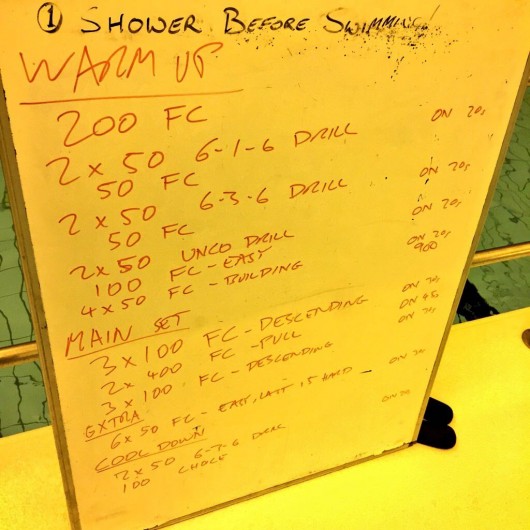 ① SHOWER BEFORE SWIMMING
WARM UP
200 FC
2 x 50 6-1-6 DRILL ON 20s
50 FC
2 x 50 6-3-6 DRILL ON 20s
50 FC
2 x 50 UNCO DRILL ON 20s
100 FC - EASY
4 x 50 FC - BUILDING ON 20s
900
MAIN SET
3 x 100 FC - DESCENDING ON
2 x 400 FC - PULL ON 45
3 x 100 FC - DESCENDING ON
EXTRA
6 x 50 FC - EASY, LAST 15 HARD ON
COOL DOWN
2 x 50 DRILL ON
100 CHOICE